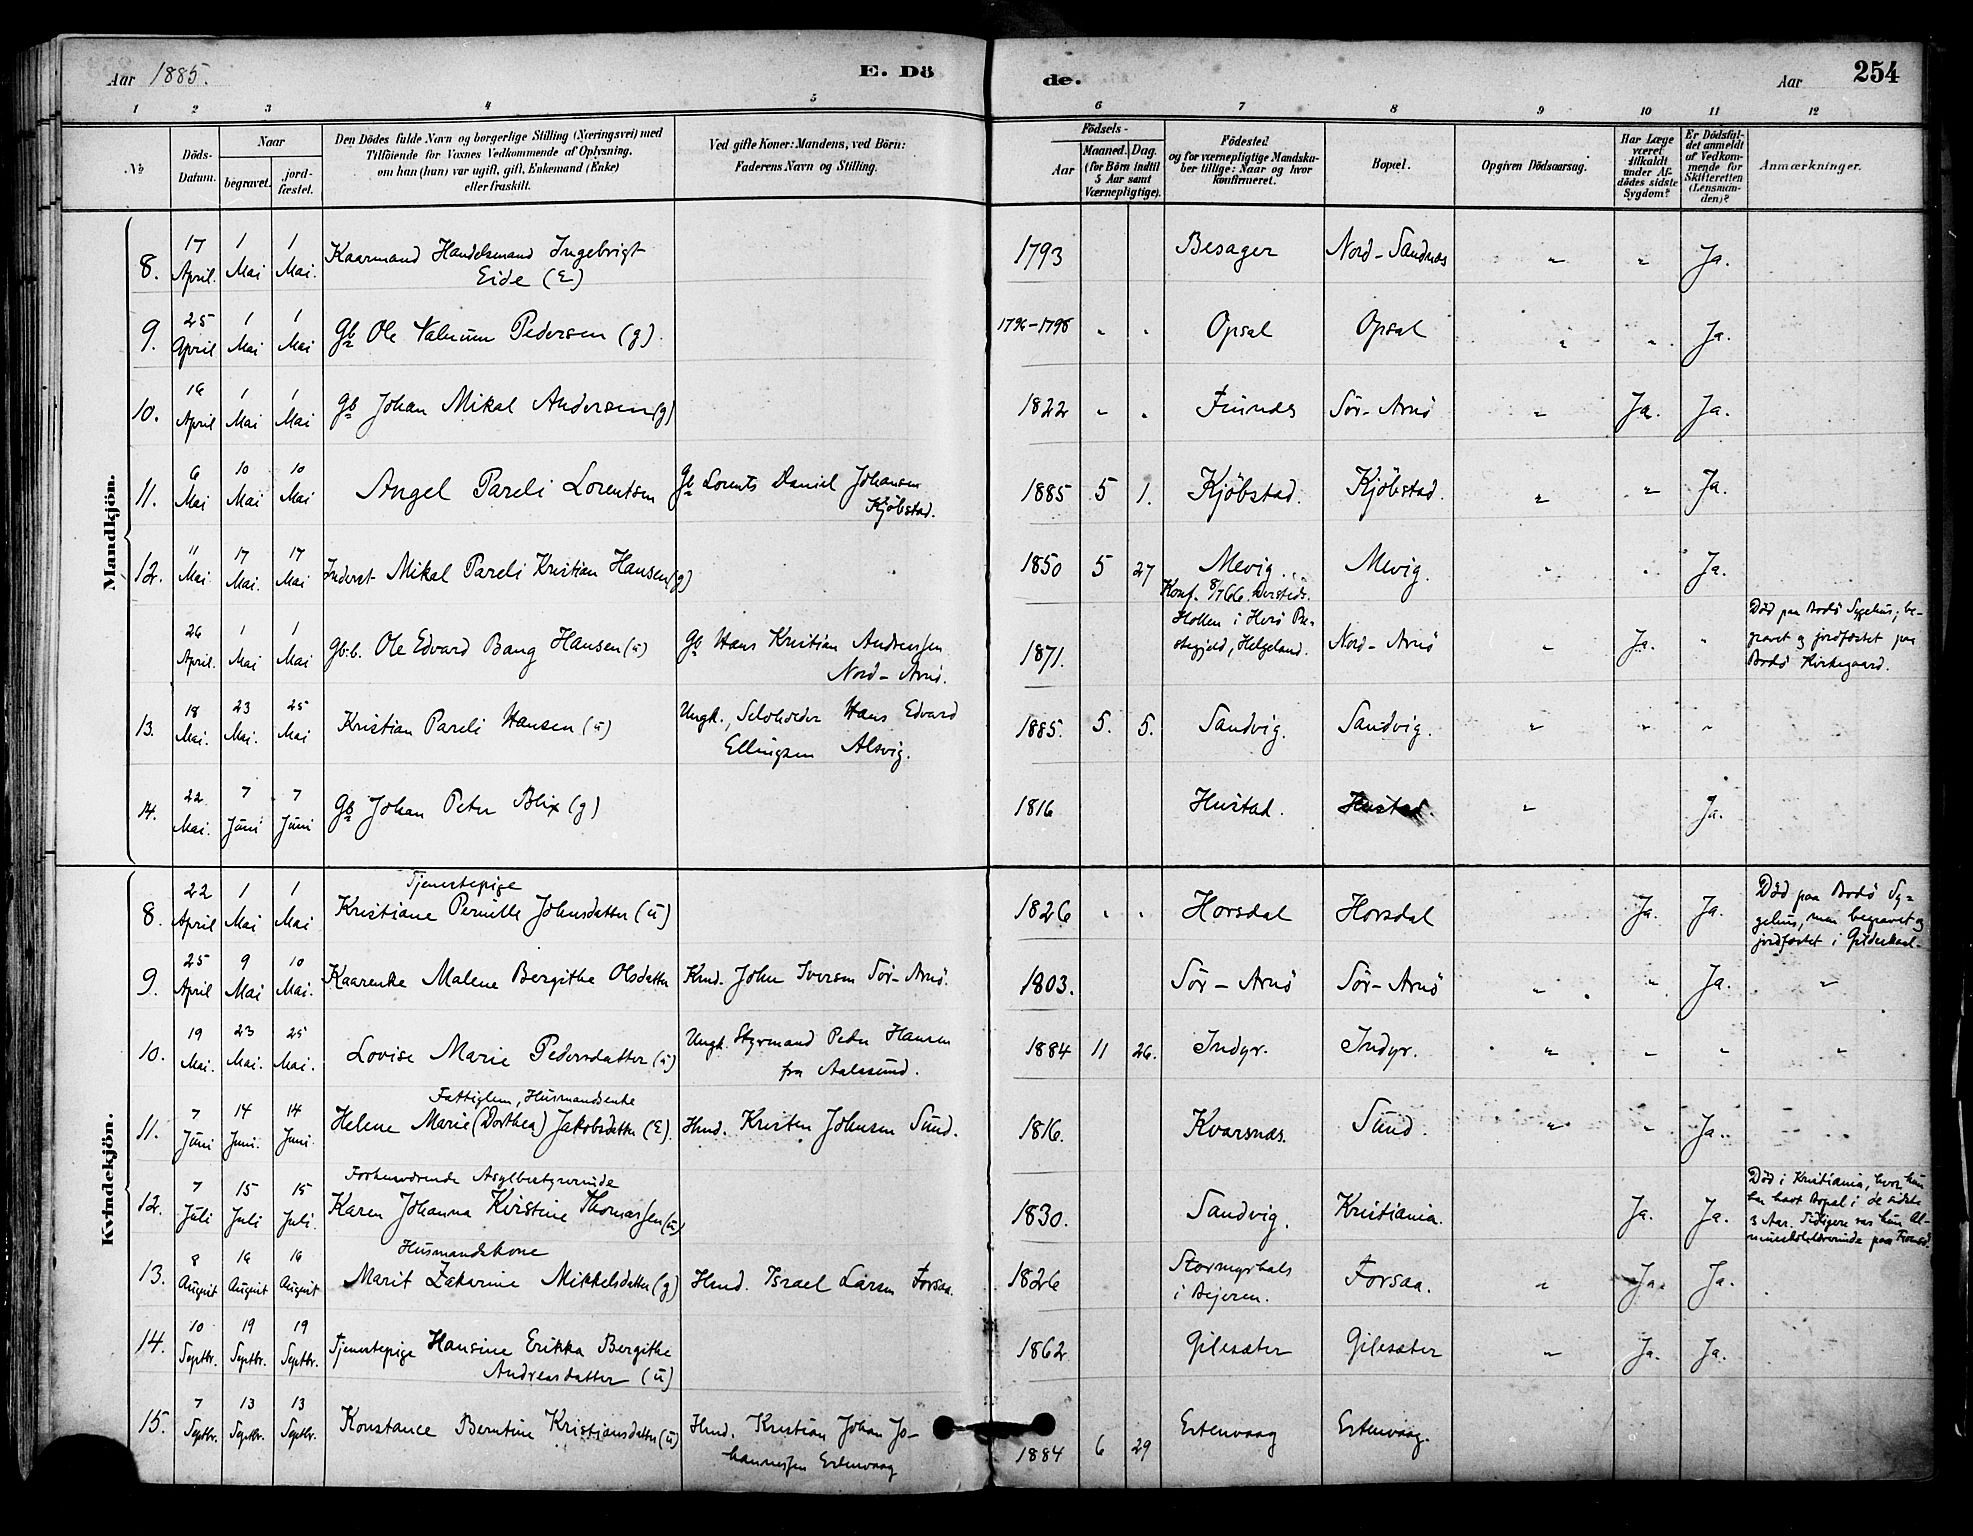 Aar 1885.
E. Dö
de.
Aar
254
1 2 3 4 5 6 7 8 9 10 11 12
No
Döds-Datum.
Naar
begravet.
jordfæstet.
Den Dödes fulde Navn og borgerlige Stilling (Næringsvei) med
Tilföiende for Voxnes Vedkommende af Oplysning,
om han (hun) var ugift, gift, Enkemand (Enke)
eller fraskilt.
Ved gifte Koner: Mandens, ved Börn:
Faderens Navn og Stilling.
Födsels-
Aar
Maaned. Dag.
(for Börn indtil
5 Aar samt
Værnepligtige).
Födested
og for værnepligtige Mandska-
ber tillige: Naar og hvor
konfirmeret.
Bopæl.
Opgiven Dödsaarsag.
Har Læge
været
tilkaldt
under Af-
dödes sidste
Sygdom?
Er Dödsfal-
det anmeldt
af Vedkom-
mende for
Skifteretten
(Lensman-
den)?
Anmærkninger.
Mandkjön.
8. 17 April. 1 Mai 1 Mai. Kaarmand Handelsmand Ingebrigt
Eide (E) 1793 Besager Nord-Sandnes " " Ja.
9. 25 April 1 Mai 1 Mai Gb Ole Pedersen (g). 1796-1798 " " Opsal Opsal " " Ja.
10. 16 April 1 Mai 1 Mai Gb Johan Mikal Andersen (g) 1822 " " Finnes Sör-Arnö " Ja. Ja.
11. 6 Mai 10 Mai 10 Mai Angel Pareli Lorentsen Gb Lorents Daniel Johansen
Kjöbstad. 1885 5 1. Kjöbstad. Kjöbstad. " " Ja.
12. 11 Mai 17 Mai. 17 Mai Inderst Mikal Pareli Kristian Hansen (g) 1850 5 27 Mevig. Mevig. " " Ja.
Konf. 8/7 66.
Hollen i Herö Præ-
stegjeld, Helgeland.
26 April. 1 Mai 1 Mai Gb.b. Ole Edvard Bang Hansen (u) Gb Hans Kristian Andreassen
Nord-Arnö. 1871. Nord-Arnö " Ja. " Död paa Bodö Sygehus; be-
gravet og jordfæstet paa
Bodö Kirkegaard.
13. 18 Mai. 23 Mai. 25 Mai Kristian Pareli Hansen (u) Ungk., Selveier Hans Edvard
Ellingsen Alsvig. 1885. 5. 5. Sandvig. Sandvig. " " "
14. 22 Mai. 7 Juni 7 Juni Gb Johan Peter Blix (g) 1816 Hustad. Hustad. " Ja.
Kvindekjön.
Tjenestepige
8. 22 April 1 Mai 1 Mai Kristiane Pernille Johnsdatter (u) 1826 " " Horsdal Horsdal Ja. Ja. Död paa Bodö Sy-
gehus, men begravet og
jordfæstet i Gildeskaal.
9. 25 April 9 Mai 10 Mai. Kaarenke Malene Bergithe Olsdatter Kmd. John Iversen Sör-Arnö. 1803. Sör-Arnö Sör-Arnö " " Ja. "
10. 19 Mai. 23 Mai. 25 Mai. Lovise Marie Pedersdatter (u) Ungk. Styrmand Peter Hansen
fra Aalesund. 1884 11 26. Indyr. Indyr. " " " "
Fattiglem, Husmandsenke
11. 7 Juni 14 Juni. 14 Juni. Helene Marie (Dorthea) Jakobsdatter (E). Hmd. Kristen Johnsen Sund. 1816. Kvarsnæs. Sund. " " Ja.
Forhenværende Asylbestyrerinde
12. 7 Juli 15 Juli 15 Juli. Karen Johanna Kristine Thomassen (u) 1830. Sandvig. Kristiania. Ja. Ja. Död i Kristiania, hvor hun
har havt Bopæl i de sidste
3 Aar. Tidligere var hun Al-
mueskolelærerinde paa
Husmandskone
13. 8 August 16 August 16 August Marit Zakarine Mikkelsdatter (g) Hmd. Israel Larsen Forsaa. 1826 Stormyrhals
i Bejeren. Forsaa. " Ja. Ja.
14. 10 Septbr. 19 Septbr. 19 Septbr. Tjenestepige Hansine Erikka Bergithe
Andreasdatter (u) 1862 Gilesæter Gilesæter " Ja. Ja.
15. 7 Septbr. 13 Septbr. 13 Septbr. Konstance Berntine Kristiansdatter (u) Hmd. Kristian Johan Jo-
hannessen Ertenvaag 1884 6 29 Ertenvaag Ertenvaag.